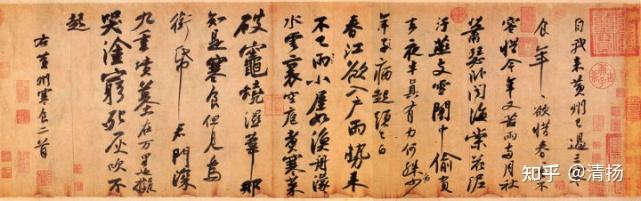 自我來黃州已過三寒
食年々欲惜春春去不
容惜今年又苦雨兩月秋
蕭瑟卧聞海棠花泥
汙燕支雪闇中偷負
去夜半真有力何殊病少
年子病起頭已白
春江欲入戶雨勢來
不已雨小屋如漁舟濛々
水雲裏空庖煮寒菜
破竈燒濕葦那
知是寒食但見烏
銜帋君門深
九重墳墓在万里也擬
哭塗窮死灰吹不
起
右黃州寒食二首
知乎 @清扬